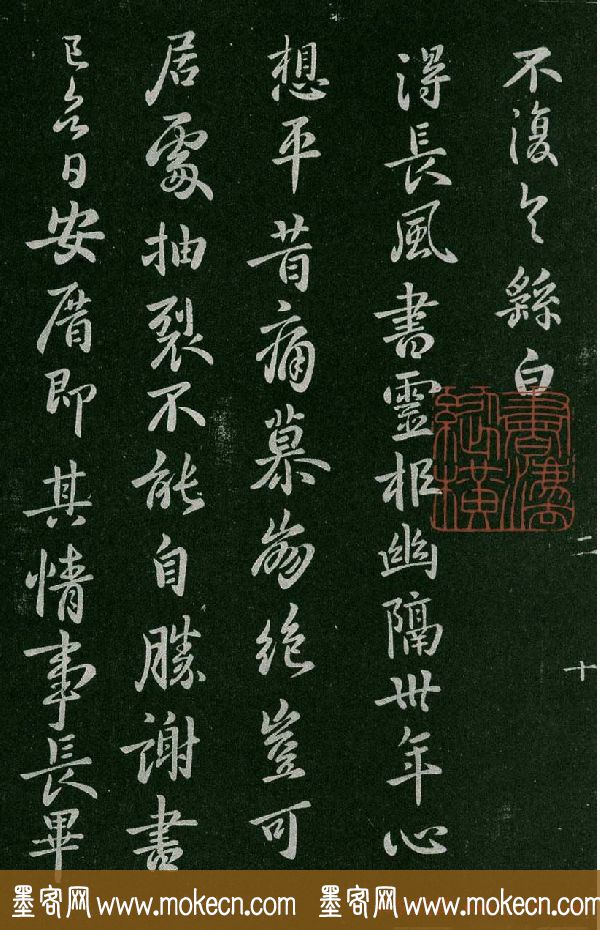 不復 繇白
得長風書靈柩幽隔卅年心
想平昔痛慕崩絕豈可
居處抽裂不能自勝謝書
已 日安厝即其情事長畢
書灋縱橫
二十
墨客网 www.mokecn.com 墨客网 www.mokecn.com